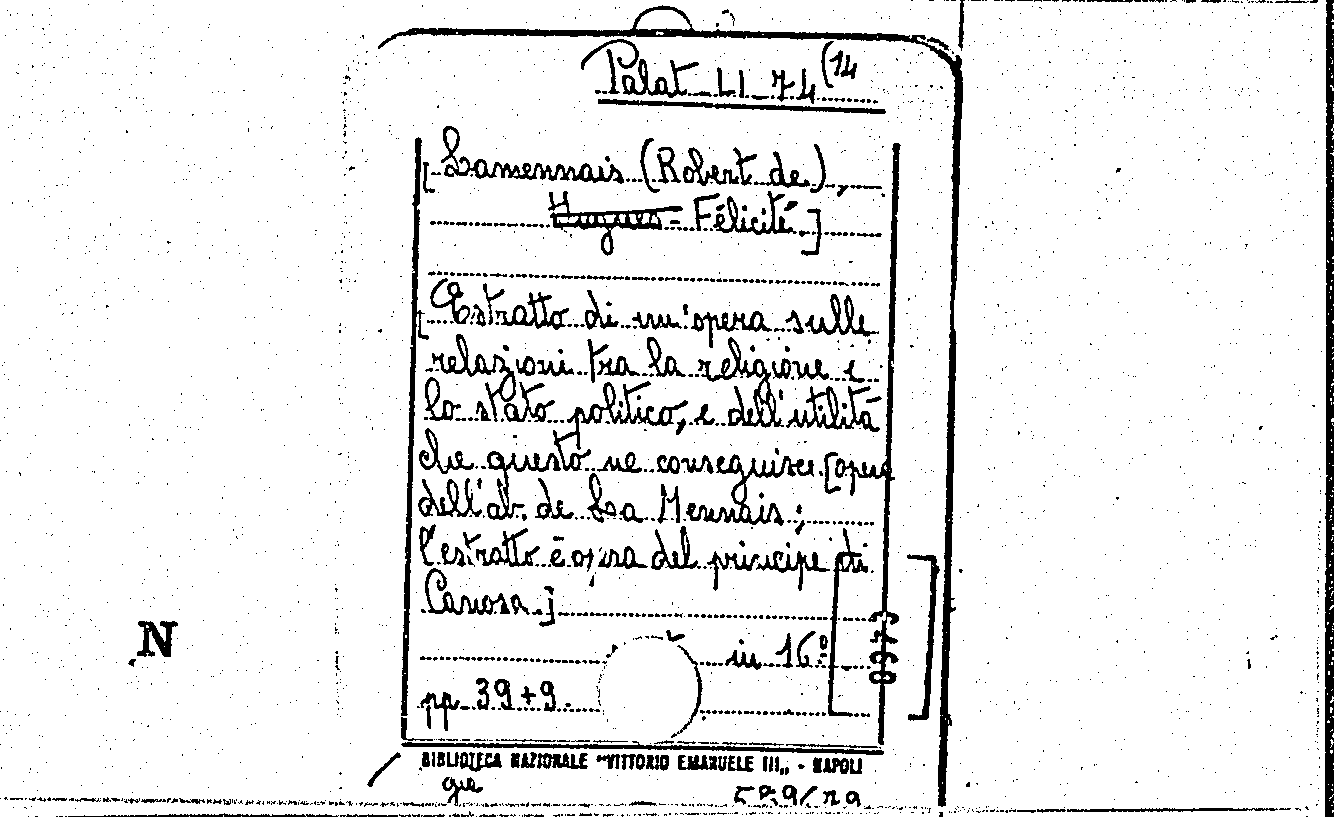 Palat LI 74 (14
[Lamennais (Robert de),
Hugues - Félicité.]
[Estratto di un'opera sulle
relazioni tra la religione e
lo stato politico, e dell'utilità
che questo ne conseguisce [opera
dell'ab. de La Mennais;
l'estratto è opera del principe di
Canosa.]
in 16º
pp. 39+9.
N
BIBLIOTECA NAZIONALE "VITTORIO EMANUELE III„ - NAPOLI